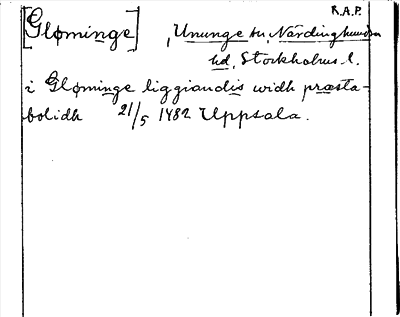 R.A.P.
[Gløminge] , Ununge sn, Närdinghundra
hd, Stockholms l.
i Gløminge liggiandis widh præsta-
bolidh 21/5 1482 Uppsala.